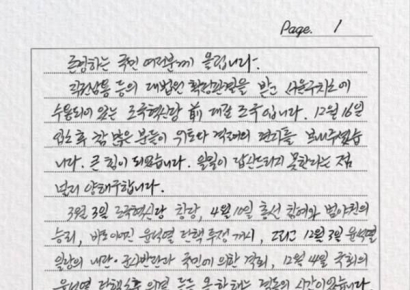 Page. 1
존경하는 국민 여러분께 올립니다.
직권남용 등의 대법원 확정판결을 받고 서울구치소에
수용되어 있는 조국혁신당 前 대표 조국입니다. 12월 16일
입소 후 참 많은 분들이 위로와 격려의 편지를 보내주셨습
니다. 큰 힘이 되었습니다. 일일이 답신드리지 못한다는 점
널리 양해 구합니다.
3월 3일 조국혁신당 창당, 4월 10일 총선 참여와 범야권의
승리, 바로 이어진 윤석열 탄핵 투쟁 개시, 그리고 12월 3일 윤석열
일당의 내란·군사반란과 국민에 의한 격퇴, 12월 14일 국회의
윤석열 탄핵소추 의결 등 눈을 못 떼는 격동의 시간이었습니다